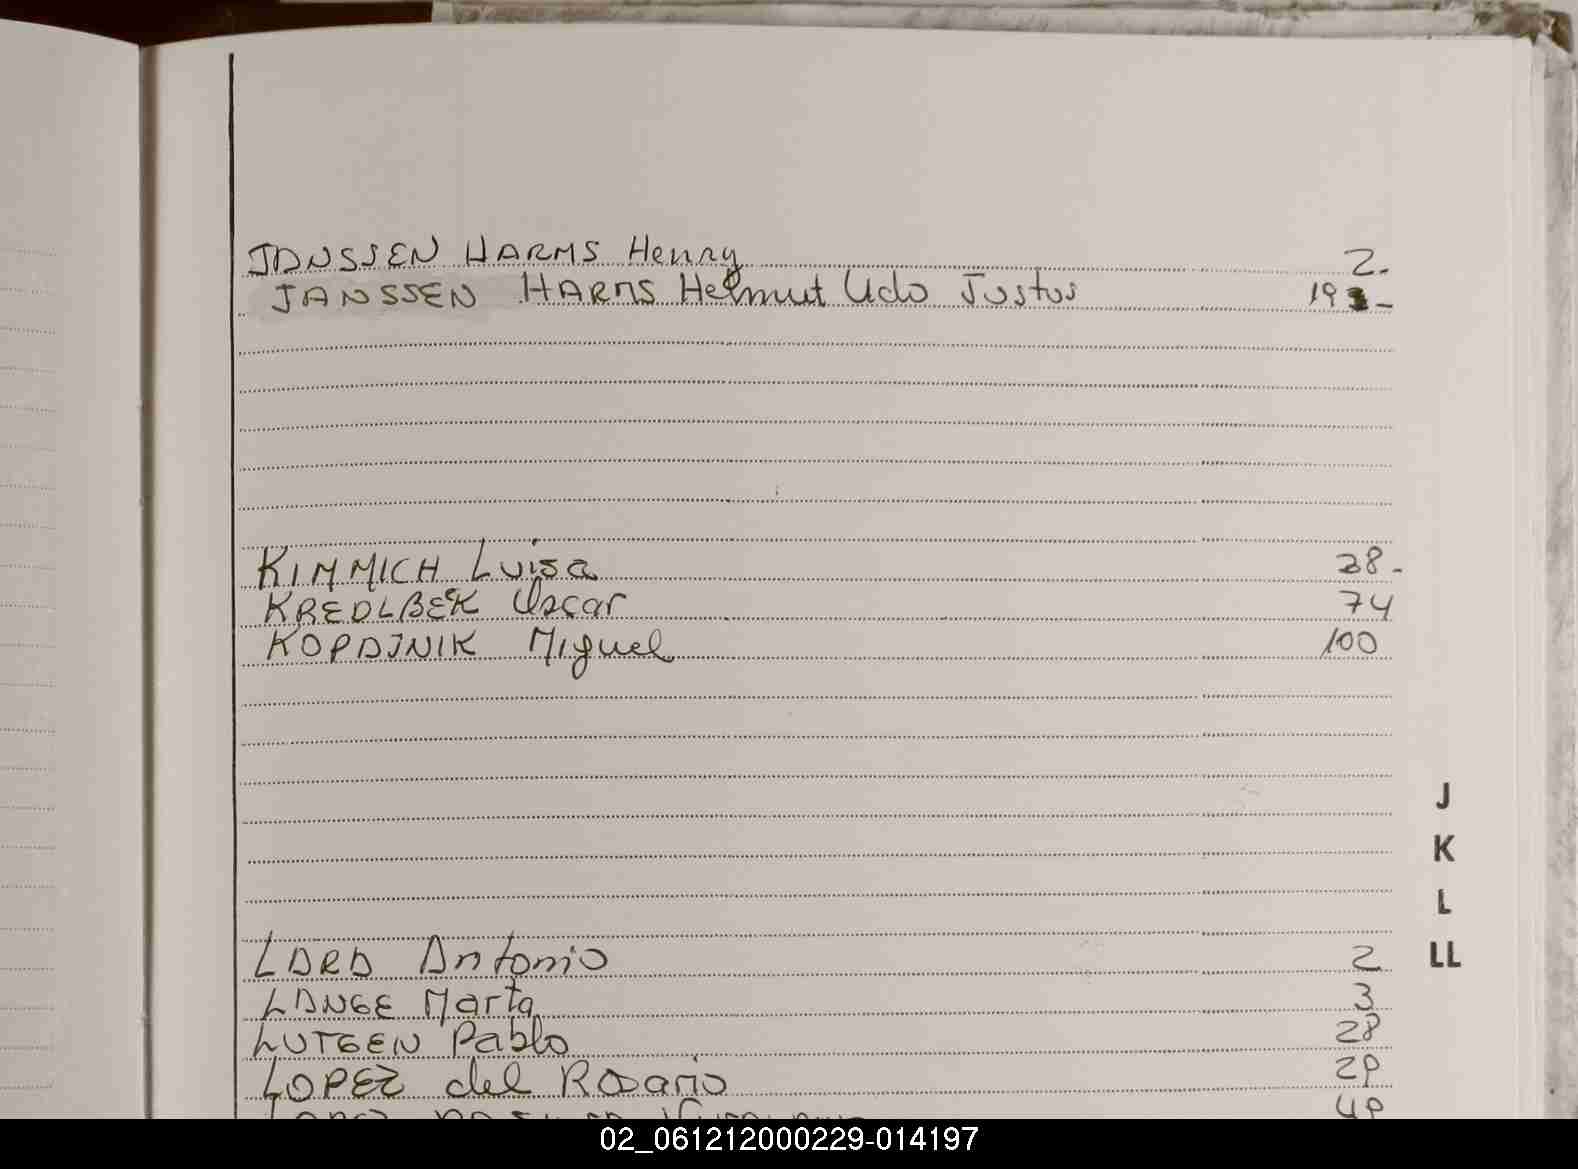 JANSSEN HARMS Henry 2.
JANSSEN HARMS Helmut Udo Justus 19
KIMMICH Luisa 38-
KREDLBEK Oscar 74
KOPAJNIK Miguel 100
J
K
L
LL
LARA Antonio 2
LANGE Marta 3
LUTGEN Pablo 28
LOPEZ del Rosario 29
LOPEZ 49
02_061212000229-014197